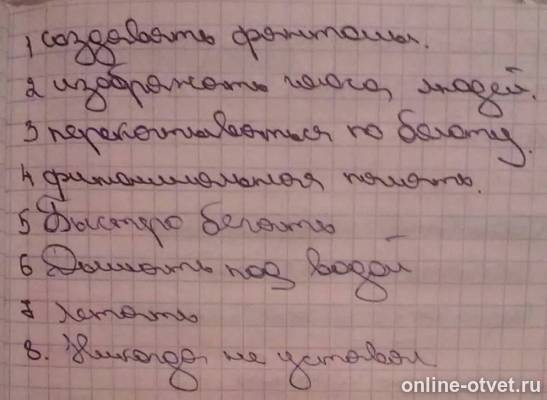 1 создавать фантомы.
2 изображать голоса людей.
3 перекатываться по болоту.
4 феноменальная память.
5 Быстро бегать
6 Дышать под водой
7 летать
8. Никогда не уставал
online-otvet.ru